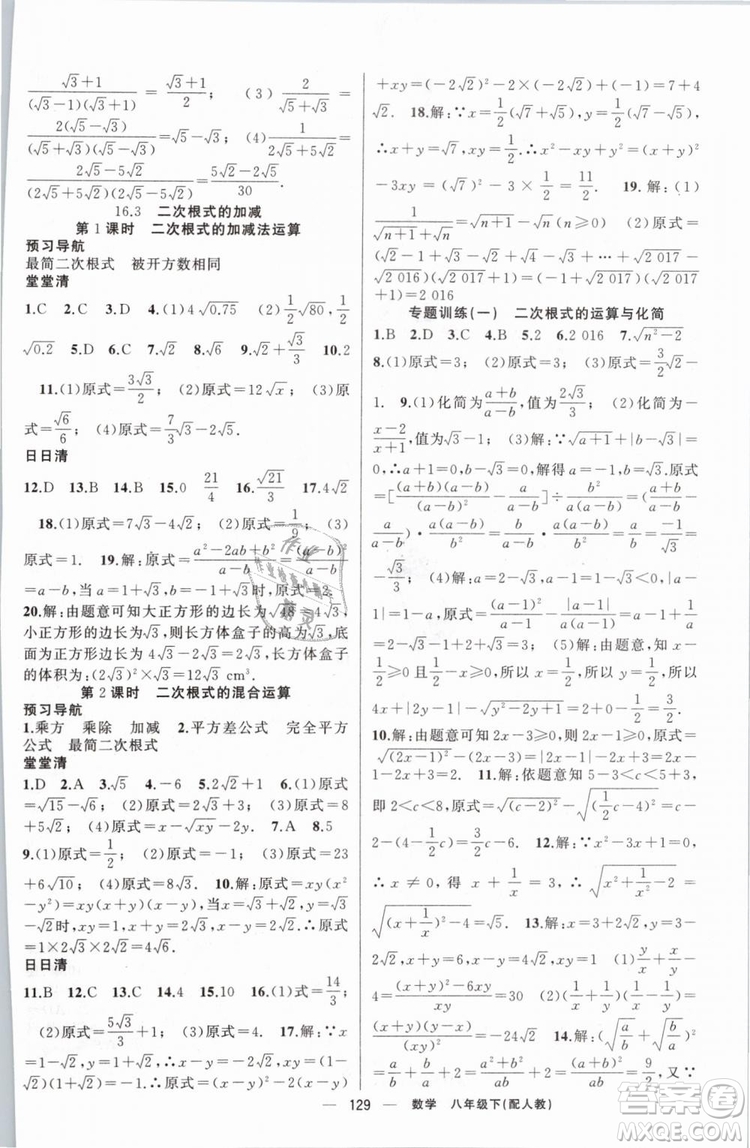 $\frac{\sqrt{3}+1}{(\sqrt{3}-1)(\sqrt{3}+1)}=\frac{\sqrt{3}+1}{2}$; (3)$\frac{2}{\sqrt{5}+\sqrt{3}}=$
$\frac{2(\sqrt{5}-\sqrt{3})}{(\sqrt{5}+\sqrt{3})(\sqrt{5}-\sqrt{3})}=\sqrt{5}-\sqrt{3}$; (4)$\frac{1}{2\sqrt{5}+\sqrt{5}}=$
$\frac{2\sqrt{5}-\sqrt{5}}{(2\sqrt{5}+\sqrt{5})(2\sqrt{5}-\sqrt{5})}=\frac{5\sqrt{2}-2\sqrt{5}}{30}$.
16.3 二次根式的加减
第1课时 二次根式的加减法运算
预习导航
最简二次根式 被开方数相同
堂堂清
1.C 2.C 3.D 4.(1)4$\sqrt{0.75}$ (2)$\frac{1}{2}\sqrt{80}$,$\frac{1}{2}$
$\sqrt{0.2}$ 5.D 6.A 7.B 8.D 9.$\sqrt{2}-\frac{2\sqrt{3}}{3}$ 10.2
11.(1)原式=$\frac{16\sqrt{3}}{3}$; (2)原式=12$\sqrt{x}$; (3)原
式=$\frac{\sqrt{6}}{6}$; (4)原式=$\frac{7}{3}\sqrt{3}-\frac{2}{3}\sqrt{2}$.
日日清
12.D 13.B 14.B 15.0 $\frac{21}{4}$ 16.$\frac{\sqrt{21}}{4}$ 17.4$\sqrt{2}$
18.(1)原式=7$\sqrt{3}$-4$\sqrt{2}$; (2)原式=$\frac{1}{9}$; (3)
原式=1. 19.解:原式=$\frac{a^2-2ab+b^2}{a-b}=\frac{(a-b)^2}{a-b}$
=a-b,当a=$\sqrt{3}$+1,b=$\sqrt{3}$时,原式=a-b=1.
20.解:由题意可知大正方形的边长为$\sqrt{48}$=4$\sqrt{3}$,
小正方形的边长为$\sqrt{3}$,则长方体盒子的高为$\sqrt{3}$,
底面的边长为4$\sqrt{3}$-2$\sqrt{3}$=2$\sqrt{3}$,∴长方体盒子
的体积为:(2$\sqrt{3}$)$^2$×$\sqrt{3}$=12$\sqrt{3}$ cm$^3$.
第2课时 二次根式的混合运算
预习导航
1.乘方 乘除 加减 2.平方差公式 完全平方
公式 最简二次根式
堂堂清
1.D 2.A 3.$\sqrt{5}$ 4.5 5.2$\sqrt{2}$-1 6.(1)原式
=$\sqrt{15}-\sqrt{10}$; (2)原式=2$\sqrt{3}$+3; (3)原式=8
+5$\sqrt{2}$; (4)原式=x-$\sqrt{xy}$-2y. 7.A 8.5
9.(1)原式=$\frac{1}{2}$; (2)原式=-1; (3)原式=23
+6$\sqrt{10}$; (4)原式=8$\sqrt{3}$. 10.解:原式=xy(x$^2$
-y$^2$)=xy(x+y)(x-y),当x=1+$\sqrt{2}$,y=1-
$\sqrt{2}$时,xy=-1,x+y=2,x-y=2$\sqrt{2}$,∴原式=
-1×2×2$\sqrt{2}$=-4$\sqrt{2}$.
日日清
11.B 12.C 13.C 14.2 15.10 16.(1)式=$\frac{14}{3}$;
(2)原式=$\frac{5\sqrt{3}}{3}$+1; (3)原式=4$\sqrt{6}$. 17.解:∵x
=1-$\sqrt{2}$,y=1+$\sqrt{2}$,∴x-y=(1-$\sqrt{2}$)-(1+
$\sqrt{2}$)=-2$\sqrt{2}$,xy=(1-$\sqrt{2}$)(1+$\sqrt{2}$)=-1,∴x$^2$
+xy=(-2$\sqrt{2}$)$^2$-2×(-2$\sqrt{2}$)+(-1)=7+4
$\sqrt{2}$. 18.解:∵x=$\frac{1}{2}(\sqrt{7}+\sqrt{5})$,y=$\frac{1}{2}(\sqrt{7}-\sqrt{5})$,
∴x+y=$\sqrt{7}$,xy=$\frac{1}{2}$,∴x$^2$-xy+y$^2$=(x+y)$^2$
-3xy=($\sqrt{7}$)$^2$-3×$\frac{1}{2}=\frac{11}{2}$. 19.解:(1)
$\frac{1}{\sqrt{n+1}+\sqrt{n}}=\sqrt{n+1}-\sqrt{n}$(n≥0) (2)原式=
($\sqrt{2}$-1+$\sqrt{3}-\sqrt{2}$+…+$\sqrt{2 017}$-
$\sqrt{2 016}$)($\sqrt{2 017}$+1)=($\sqrt{2 017}$-1)($\sqrt{2 017}$
+1)=2 016
专题训练(一) 二次根式的运算与化简
1.B 2.D 3.C 4.B 5.2 6.2 016 7.$\sqrt{n^2-1}$
8.(1)原式=3; (2)原式=3; (3)原式=$\frac{3\sqrt{2}}{2}$-
1. 9.(1)化简为$\frac{a+b}{a-b}$,值为$\frac{2\sqrt{3}}{3}$; (2)化简为
$\frac{x-2}{x+1}$,值为$\sqrt{3}$-1;(3)解:∵$\sqrt{a+1}$+|$\sqrt{3}$-b|=
0,∴a+1=0,$\sqrt{3}$-b=0,解得a=-1,b=$\sqrt{3}$.原式
=[$\frac{(a+b)(a-b)}{(a-b)^2}-\frac{a}{a-b}$]÷$\frac{b^2}{a(a-b)}=\frac{b}{a-b}$
·$\frac{a(a-b)}{b^2}=\frac{a}{b}=-\frac{\sqrt{3}}{3}$; (4)∵a=2-$\sqrt{3}$,∴|a-
1|=1-a,原式=$\frac{(a-1)^2}{a-1}-\frac{|a-1|}{a(a-1)}$=a-1+$\frac{1}{a}$
=2-$\sqrt{3}$-1+2+$\sqrt{3}$=3; (5)解:由题意,得4x-
1≥0且1-4x≥0,∴x=$\frac{1}{4}$,∴y=$\frac{1}{2}$,∴原式=
4x+|2y-1|-$\sqrt{y^2-2y+1}$=4x+|2y-1|-|y-1|=
10.解:由题意可知2-x≥0,则2x-3≤1,∴原式=
$\sqrt{(2x-1)^2}$-|x-2|=|2x-1|-(x-2)=2x-
1-x+2=x+1. 11.解:依题意知5-3<c<5+3,
即2<c<8,原式=$\sqrt{(c-2)^2}-\sqrt{(\frac{1}{2}c-4)^2}$=c-
2-(4-$\frac{1}{2}$c)=$\frac{3}{2}$c-6. 12.解:∵x$^2$-4x+1=0,
∴x≠0,得x+$\frac{1}{x}$=4,∴原式=
$\sqrt{(x+\frac{1}{x})^2-4}$=2$\sqrt{3}$. 13.解:∵x=3+2$\sqrt{2}$,y=3
-2$\sqrt{2}$,∴x+y=6,xy=1,x-y=4$\sqrt{2}$. (1)$\frac{y}{x}+\frac{x}{y}$-
4=$\frac{(x+y)^2-6xy}{xy}=\frac{6^2-6×1}{1}$=30; (2)原式=
$\frac{(x+y)(y-x)}{(xy)^2}$=-24$\sqrt{2}$ 14.解:($\sqrt{\frac{a}{b}}+\sqrt{\frac{b}{a}}$)$^2$=
$\frac{a}{b}+\frac{b}{a}+2=\frac{a^2+b^2}{ab}+2=\frac{(a+b)^2}{ab}=\frac{9}{2}$,又∵
129 — 数学 八年级下(配人教)